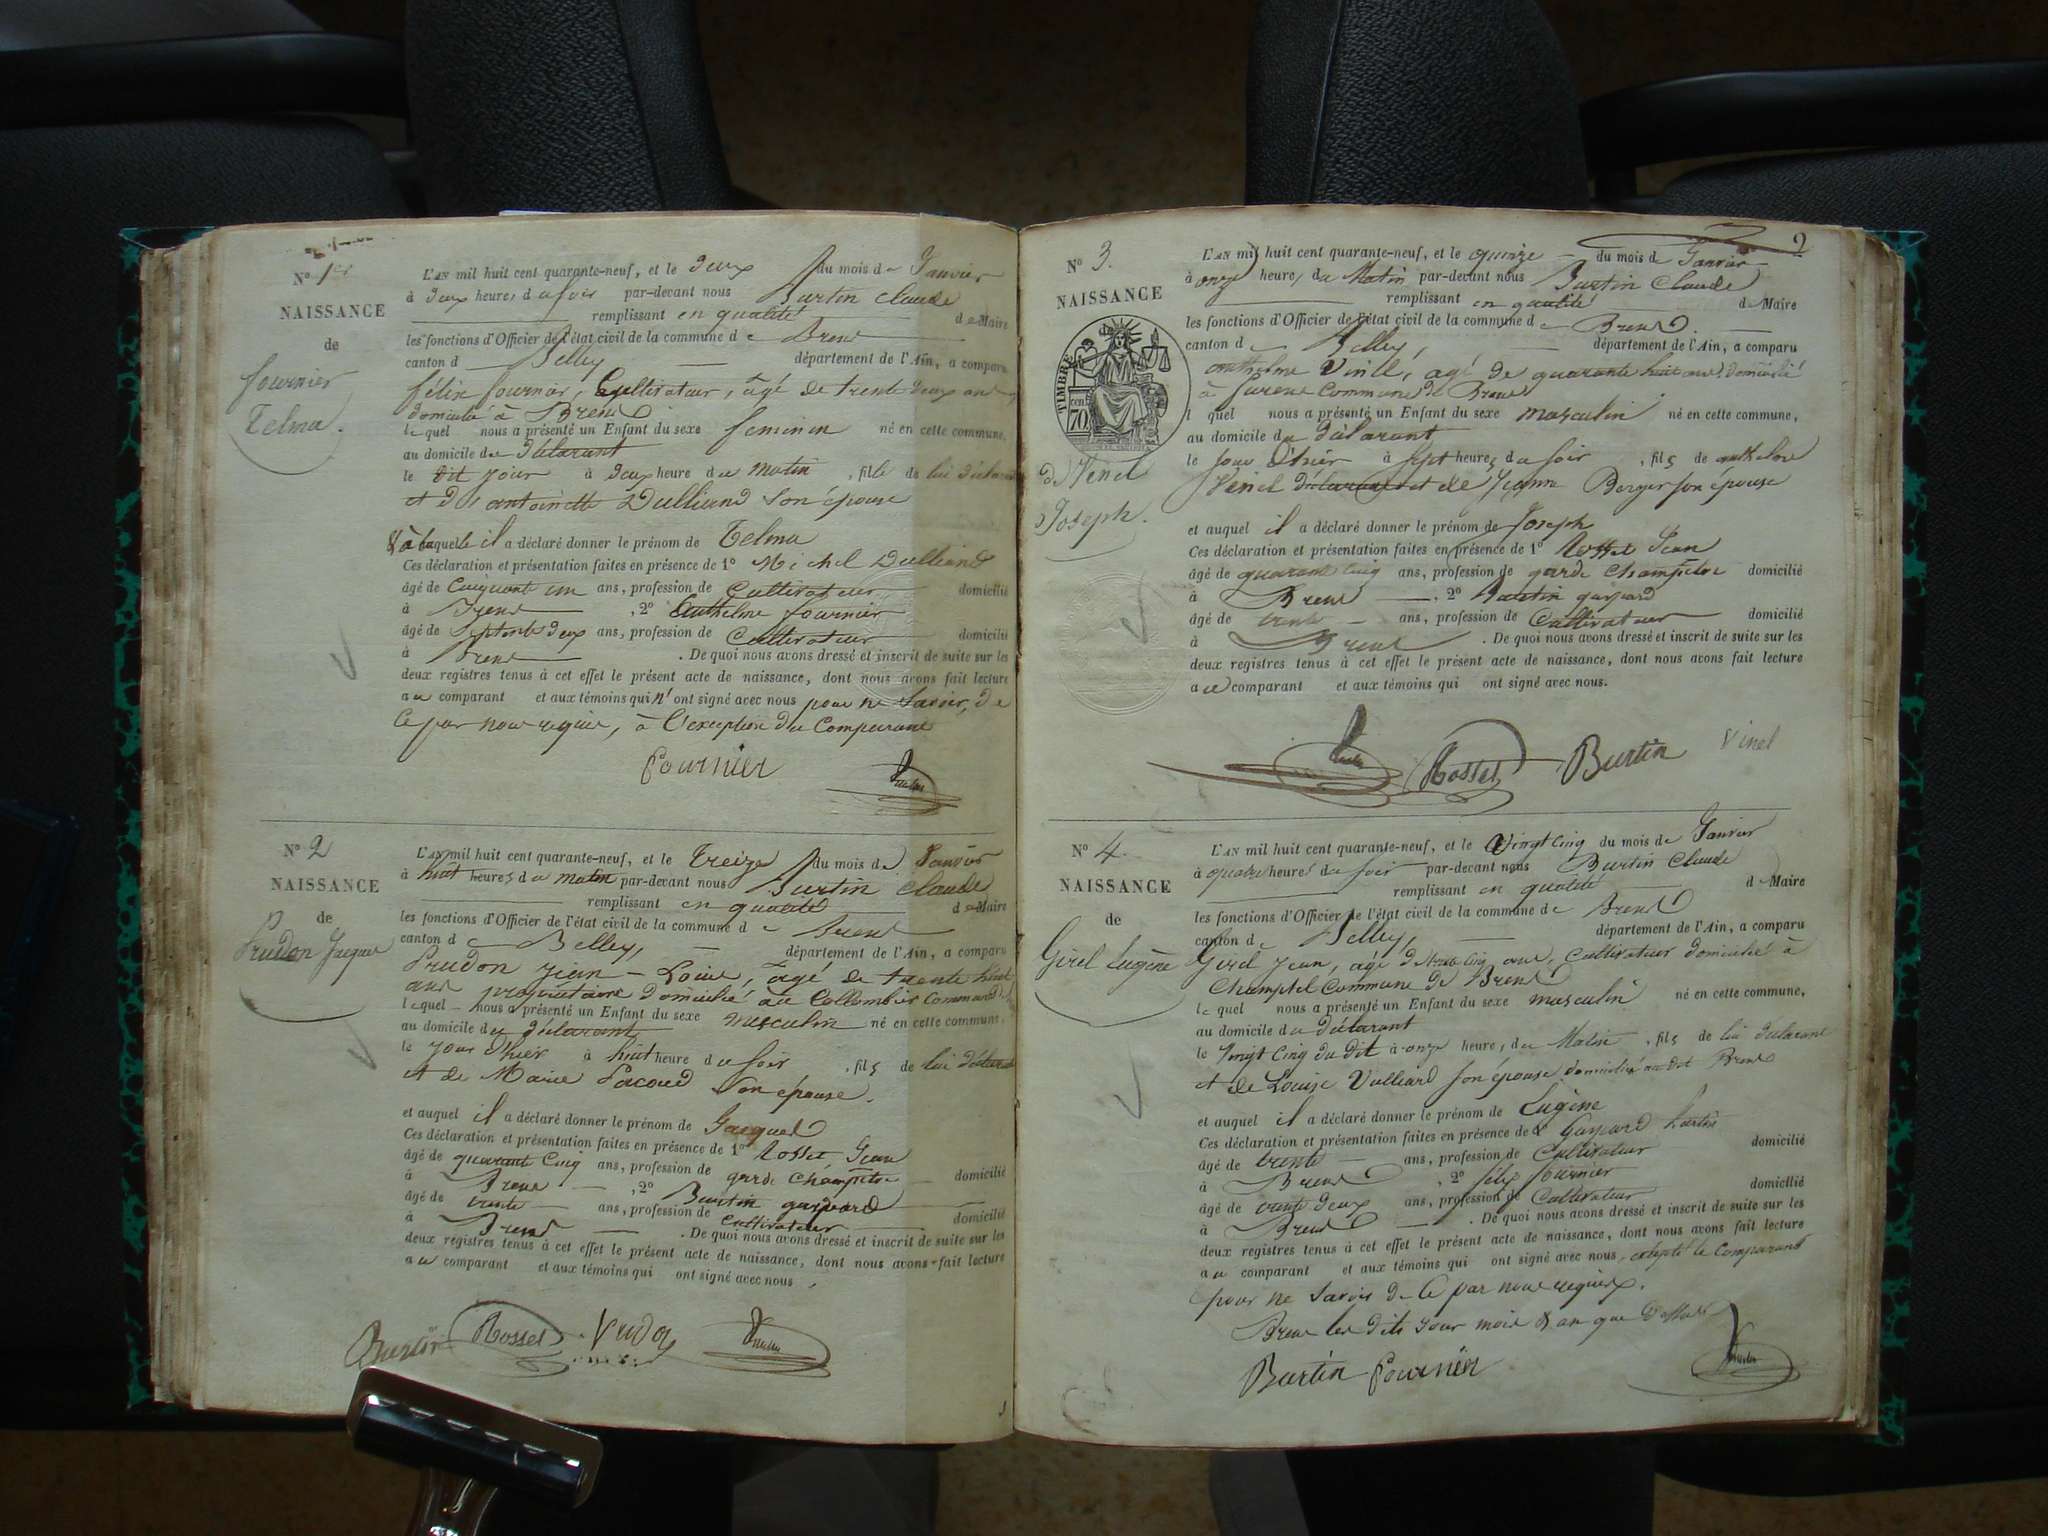 N° 1er
NAISSANCE
de
fournier
Telma.
L'AN mil huit cent quarante-neuf, et le deux du mois de Janvier
à deux heures du soir par-devant nous Burtin Claude
remplissant en qualité de Maire
les fonctions d'Officier de l'état civil de la commune de Brens
canton d Belley département de l'Ain, a comparu
félix fournier, Cultivateur, âgé de trente deux ans,
domicilié à Brens
lequel nous a présenté un Enfant du sexe feminin né en cette commune,
au domicile du déclarant
le dit jour à deux heure du matin, fille de lui déclarant
et d' antoinette Dulliand son épouse
& à laquelle il a déclaré donner le prénom de Telma
Ces déclaration et présentation faites en présence de 1° Michel Dulliand
âgé de Cinquant un ans, profession de Cultivateur domicilié
à Brens, 2° Anthelme fournier
âgé de septante deux ans, profession de Cultivateur domicilié
à Brens. De quoi nous avons dressé et inscrit de suite sur les
deux registres tenus à cet effet le présent acte de naissance, dont nous avons fait lecture
au comparant et aux témoins qui n'ont signé avec nous pour ne savoir, de
ce par nous requis, à l'exception du Comparant
Fournier
N° 2
NAISSANCE
de
Prudon Jacques
L'AN mil huit cent quarante-neuf, et le Treize du mois de Janvier
à huit heures du matin par-devant nous Burtin Claude
remplissant en qualité de Maire
les fonctions d'Officier de l'état civil de la commune de Brens
canton de Belley, département de l'Ain, a comparu
Prudon jean-Loüis, âgé de trente huit
ans propriétaire domicilié au Collombier Commune
lequel nous a présenté un Enfant du sexe masculin né en cette commune,
au domicile du déclarant
le jour d'hier à huit heure du soir, fils de lui déclarant
et de Marie son épouse.
et auquel il a déclaré donner le prénom de Jacques
Ces déclaration et présentation faites en présence de 1° Rosset Jean
âgé de quarant Cinq ans, profession de garde Champêtre domicilié
à Brens, 2° Burtin gaspard
âgé de trente ans, profession de Cultivateur domicilié
à Brens. De quoi nous avons dressé et inscrit de suite sur les
deux registres tenus à cet effet le présent acte de naissance, dont nous avons fait lecture
au comparant et aux témoins qui ont signé avec nous.
Burtin Rosset Prudon
2
N° 3.
NAISSANCE
de
TIMBRE
70
Venel
Joseph.
L'AN mil huit cent quarante-neuf, et le quinze du mois d Janvier
à onze heures du Matin par-devant nous Burtin Claude
remplissant en qualité de Maire
les fonctions d'Officier de l'état civil de la commune de Brens.
canton de Belley, département de l'Ain, a comparu
anthelme Vinel, agé de quarante huit ans, domicilié
à Commune de Brens
l quel nous a présenté un Enfant du sexe masculin né en cette commune,
au domicile du déclarant
le jour d'hier à sept heures du soir, fils de anthelme
Venel déclarant et de Jeanne Berger son épouse
et auquel il a déclaré donner le prénom de Joseph
Ces déclaration et présentation faites en présence de 1° Rosset Jean
âgé de quarant cinq ans, profession de garde Champêtre domicilié
à Brens, 2° Burtin gaspard
âgé de trente ans, profession de Cultivateur domicilié
à Brens. De quoi nous avons dressé et inscrit de suite sur les
deux registres tenus à cet effet le présent acte de naissance, dont nous avons fait lecture
au comparant et aux témoins qui ont signé avec nous.
Rosset Burtin Vinel
N° 4.
NAISSANCE
de
Girel Eugène
L'AN mil huit cent quarante-neuf, et le Vingt Cinq du mois de Janvier
à quatre heures du soir par-devant nous Burtin Claude
remplissant en qualité de Maire
les fonctions d'Officier de l'état civil de la commune de Brens
canton de Belley, département de l'Ain, a comparu
Girel Jean, agé de trente Cinq ans, Cultivateur domicilié à
Champtel Commune de Brens
le quel nous a présenté un Enfant du sexe masculin né en cette commune,
au domicile du déclarant
le Vingt Cinq du dit à onze heures du Matin, fils de lui déclarant
et de Louise Vulliard son épouse, domicilié au dit Brens
et auquel il a déclaré donner le prénom de Eugène
Ces déclaration et présentation faites en présence de 1° Gaspard burtin
âgé de trente ans, profession de Cultivateur domicilié
à Brens, 2° félix fournier
âgé de trente deux ans, profession de Cultivateur domicilié
à Brens. De quoi nous avons dressé et inscrit de suite sur les
deux registres tenus à cet effet le présent acte de naissance, dont nous avons fait lecture
au comparant et aux témoins qui ont signé avec nous, excepté le Comparant
pour ne savoir de ce par nous requis.
Brens les dits jour mois & an que dessus
Burtin Fournier